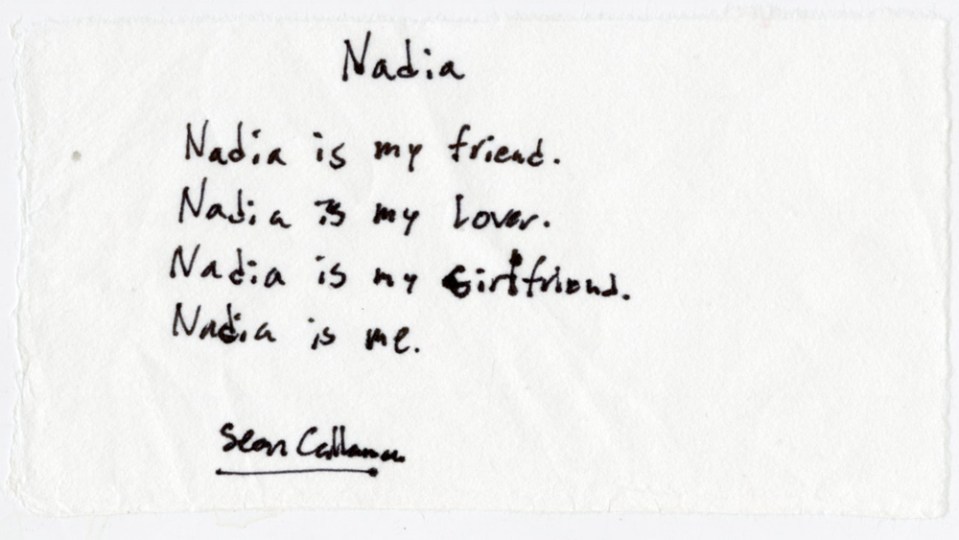 Nadia
Nadia is my friend.
Nadia is my lover.
Nadia is my Girlfriend.
Nadia is me.
Sean